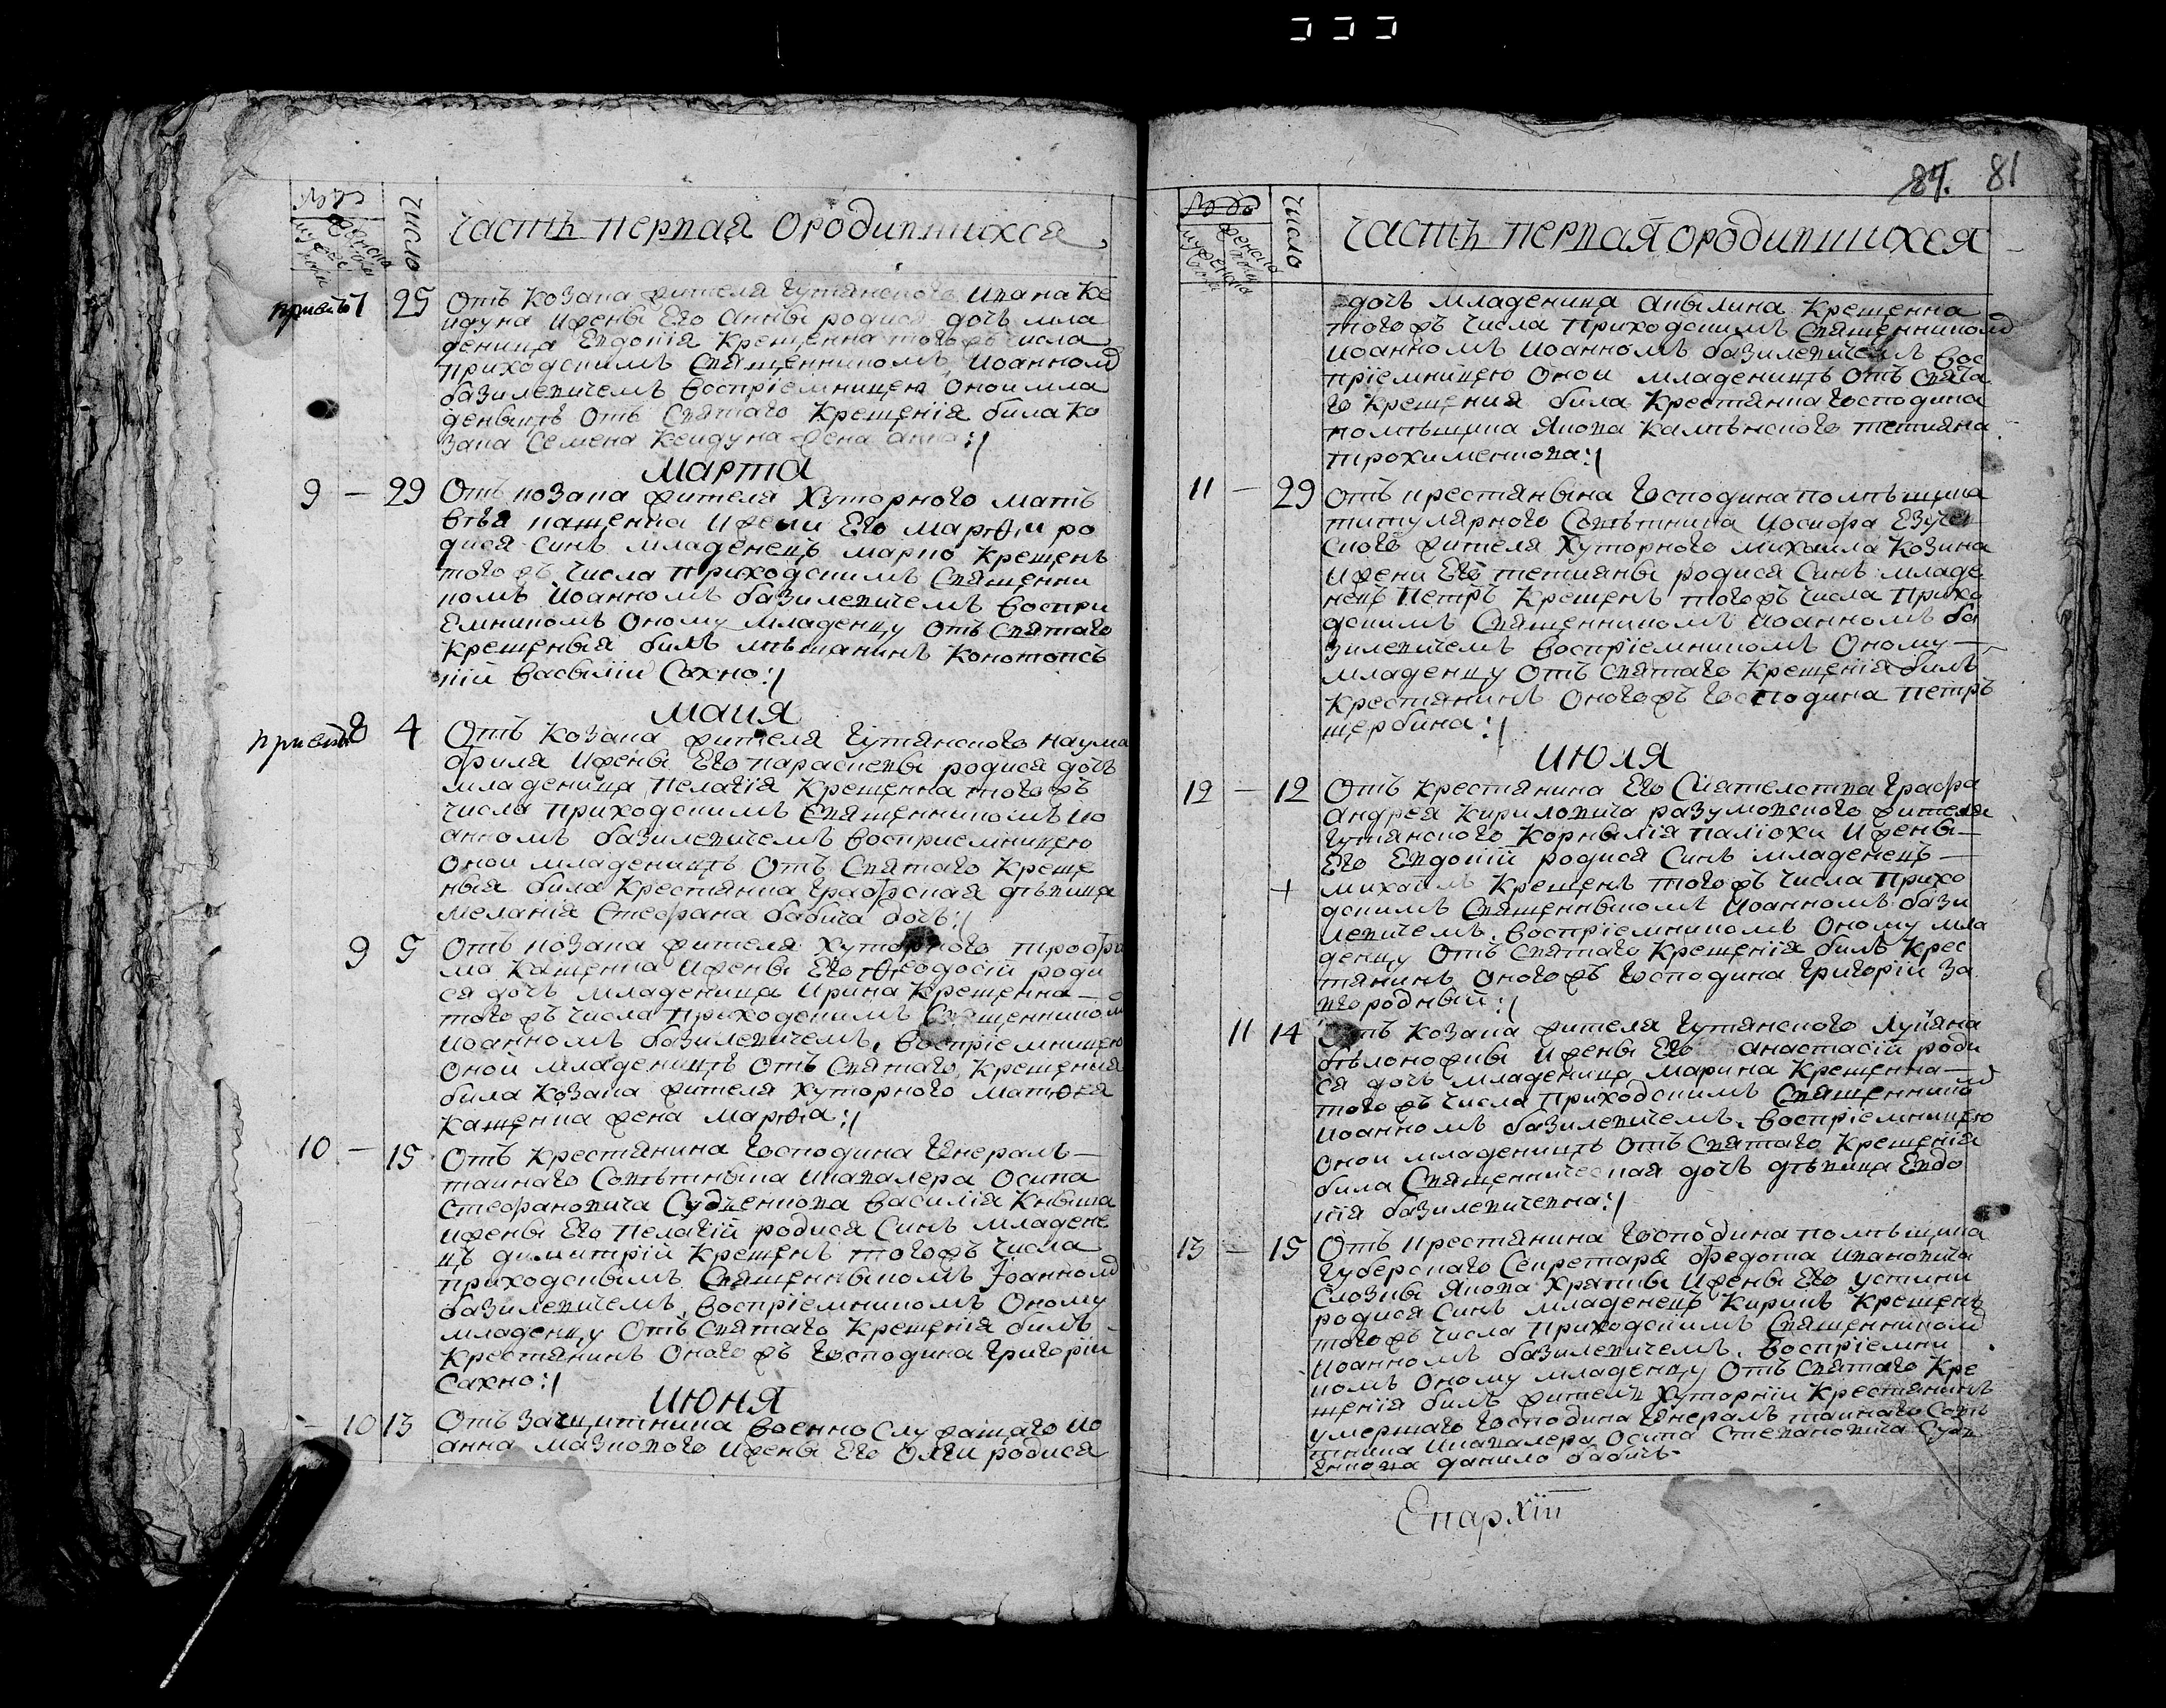 часть первая о родившихся
число
25 Отъ козака жителя гутянского Ивана Ке
йдуна и жены Его Анны родися дочь мла
деница Евдокія Крещенна того жъ числа
приходскимъ Священникомъ Иоанном
базилевичемъ воспріемницею оной мла
деныцѣ отъ Святаго Крещенія била ко
зака Семена Кейдуна жена анна:/
марта
9 — 29 Отъ козака жителя Хуторного матъ
вѣя кащенка и жени Его марѳи ро
дися синъ младенецъ марко крещенъ
того жъ числа приходскимъ Священни
комъ Иоанномъ базилевичемъ воспри
емникомъ оному младенцу отъ Святаго
крещеныя билъ мѣщанинъ конотопсъ
кій васылій Сахно:/
маия
8 4 Отъ козака жителя гутянского наума
жиля и жены Его параскевы родися дочь
младеница Пелагія Крещенна того жъ
числа приходскимъ Священникомъ Ио
анномъ базилевичемъ восприемницею
оной младеницѣ отъ Святаго Креще
ныя била крестянка графская дѣвица
меланія Стефана бабича дочь:/
9 5 Отъ козака жителя хуторного трофи
ма кащенка и жены Его Ѳеодосій роди
ся дочь младеница Ирина Крещенна —
того жъ числа приходскимъ Священником
Иоанномъ базилевичемъ, воспріемницею
оной младеницѣ отъ Святаго Крещения
била козака жителя хуторного матѳея
кащенка жена марѳа:/
10 — 15 Отъ крестянина господина генералъ —
тайнаго Совѣтныка и кавалера Осипа
Стефановича Судіенкова василія Кныша
и жены Его Пелагій родися синъ младене
цъ димитрій крещенъ того жъ числа
приходскымъ Священныкомъ Іоанном
базилевичемъ, воспріемникомъ оному
младенцу отъ Святаго Крещенія билъ
крестянинъ оного жъ господина григорій
Сахно:/
июня
— 10 13 Отъ защитника военнослужащаго Ио
анна мазнового и жены Его Олги родися
84. 81
число
часть первая о родившихся
дочь младеница акылина Крещенна
того жъ числа приходскимъ Священником
Иоанномъ Иоанномъ базилевичемъ вос
пріемницею оной младеницѣ отъ Свята
го крещения била крестянка господина
помѣщика Якова камѣнского тетияна
трохименкова:/
11 — 29 Отъ крестянына господина помѣщика
титулярного Совѣтника Иосифа
ского жителя Хуторного михаила козина
и жени Его тетияны родися синъ младе
нецъ Петръ крещенъ того жъ числа прихо
дскимъ Священникомъ Иоанномъ ба
зилевичемъ воспріемникомъ оному —
младенцу отъ Святаго крещенія билъ
крестянинъ оного жъ господина петръ
щербина:/
июля
12 — 12 Отъ крестянина Его Сіятелства графа
андрея кириловича разумовского жителя
гутянского корнылія паліохи и жены —
Его Евдокій родися синъ младенецъ —
+ михаилъ крещенъ того жъ числа прихо
дскимъ Священныкомъ Иоанномъ бази
левичемъ, воспріемникомъ оному мла
денцу отъ Святаго Крещенія билъ крес
тянинъ оного жъ господина григорій за
вгородный:/
11 14 Отъ козака жителя гутянского Лукяна
бѣлоножкы и жены Его анастасій роди
ся дочь младеница марина крещенна —
того жъ числа приходскимъ Священником
Иоанномъ базилевичемъ, воспріемницею
оной младеницѣ отъ Святаго крещенія
била Священническая дочь дѣвица Евдо
кія базилевичевна:/
13 — 15 Отъ крестянина господина помѣщика
губерскаго Секретара федота Ивановича
Слозкы Якова храпкы и жены Его устини
родися синъ младенецъ кирикъ крещенъ
того жъ числа приходскимъ Священником
Иоанномъ базилевичемъ, воспріемни
комъ оному младенцу отъ Святаго кре
щенія билъ жителъ хуторній крестянинъ
умершаго господина генералъ тайнаго Совѣ
тника и кавалера Осипа Степановича Суді
енкова данило бабичъ
Епархіи